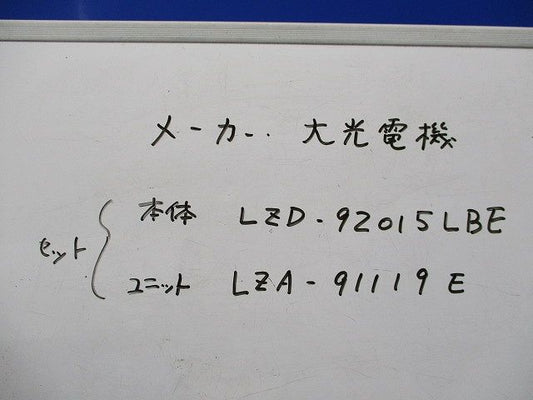 メーカー. 大光電機
セット { 本体 LZD-92015LBE
ユニット LZA-91119E